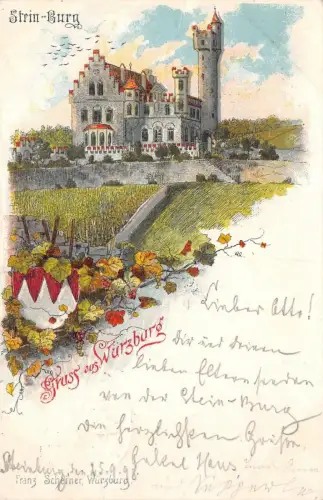 Stein-Burg
Gruss aus Würzburg
Lieber Otto!
dir und deinen
lieben Eltern senden
von der Stein-Burg
die herzlichsten Grüße
Onkel Hans
Steinburg den
Franz Scheiner, Würzburg